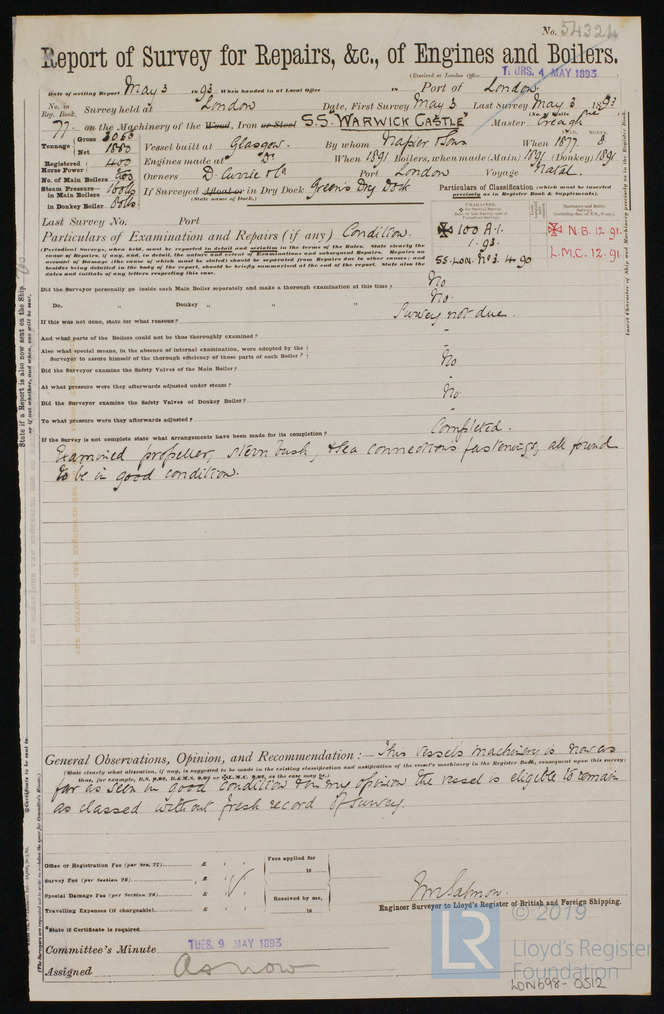 No. 54324
Report of Survey for Repairs, &c., of Engines and Boilers.
(Received at London Office THURS. 4 MAY 1893)
Date of writing Report May 3 1893 When handed in at Local Office 18 Port of London.
No. in Reg. Book. Survey held at London Date, First Survey May 3 Last Survey May 3 1893
77. on the Machinery of the Wood, Iron or Steel S.S. "WARWICK CASTLE" Master Creagh
Tonnage Gross 3053 Net 1880 Vessel built at Glasgow. By whom Napier & Sons When 1877. 8
Registered Horse Power 400 Engines made at Do When 1891 Boilers, when made (Main) 1891 (Donkey) 1891
No. of Main Boilers Owners D. Currie & Co Port London Voyage Natal.
Steam Pressure in Main Boilers 160 lbs If Surveyed Afloat or in Dry Dock Green's Dry Dock
(State name of Dock.)
in Donkey Boiler 80 lbs.
Particulars of Classification (which must be inserted precisely as in Register Book & Supplements).
Last Survey No. Port
Particulars of Examination and Repairs (if any) Condition.
100 A.1.
1.93.
SS. LON. No 3. 4 90
N.B. 12 91.
L.M.C. 12 91.
(Periodical Surveys, when held, must be reported in detail and seriatim in the terms of the Rules. State clearly the cause of Repairs, if any, and, in detail, the nature and extent of Examinations and subsequent Repairs. Repairs on account of Damage (the cause of which must be stated) should be separated from Repairs due to other causes; and besides being detailed in the body of the report, should be briefly summarized at the end of the report. State also the dates and initials of any letters respecting this case.
Did the Surveyor personally go inside each Main Boiler separately and make a thorough examination at this time? No
Do. " Donkey " " " No.
If this was not done, state for what reasons? Survey not due.
And what parts of the Boilers could not be thus thoroughly examined? -
Also what special means, in the absence of internal examination, were adopted by the Surveyor to assure himself of the thorough efficiency of those parts of each Boiler? -
Did the Surveyor examine the Safety Valves of the Main Boiler? No
At what pressure were they afterwards adjusted under steam? -
Did the Surveyor examine the Safety Valves of Donkey Boiler? No
To what pressure were they afterwards adjusted? -
If the Survey is not complete state what arrangements have been made for its completion? Completed.
Examined propeller, stern bush, & sea connections fastenings, all found
to be in good condition.
General Observations, Opinion, and Recommendation:— This vessels machinery is now as
(State clearly what alteration, if any, is suggested to be made in the existing classification and notification of the vessel's machinery in the Register Book, consequent upon this survey;
far as seen in good condition & in my opinion the vessel is eligible to remain
as classed without fresh record of survey.
Office or Registration Fee (per Sec. 27) £
Survey Fee (per Section 28) £
Special Damage Fee (per Section 28) £
Travelling Expenses (if chargeable) £
Fees applied for
18
Received by me,
18
Wm Salmon.
Engineer Surveyor to Lloyd's Register of British and Foreign Shipping.
*State if Certificate is required
Committee's Minute TUES. 9 MAY 1893
Assigned As now
LR
© 2019
Lloyd's Register
Foundation
LON698-0512